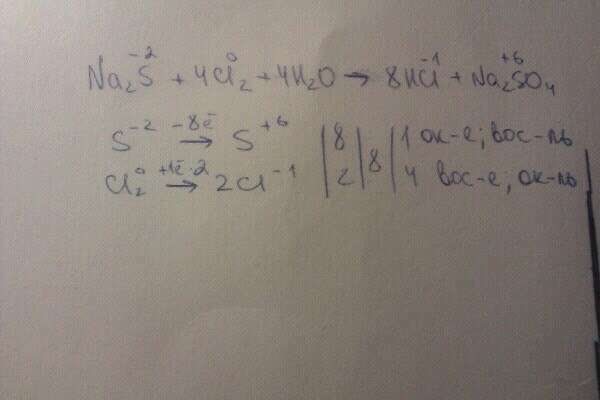 Na₂S⁻² + 4Cl₂⁰ + 4H₂O → 8HCl⁻¹ + Na₂S⁺⁶O₄
S⁻² −8ē → S⁺⁶ | 8 | 8 | 1 ок-е; вос-ль
Cl₂⁰ +1ē·2 → 2Cl⁻¹ | 2 | 4 вос-е; ок-ль